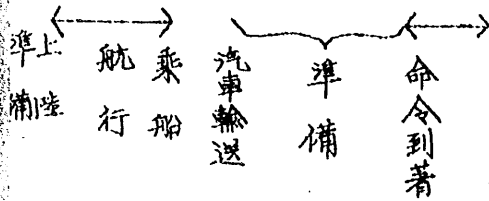 命令到著
準備
汽車輸送
乗船
航行
上陸
準備